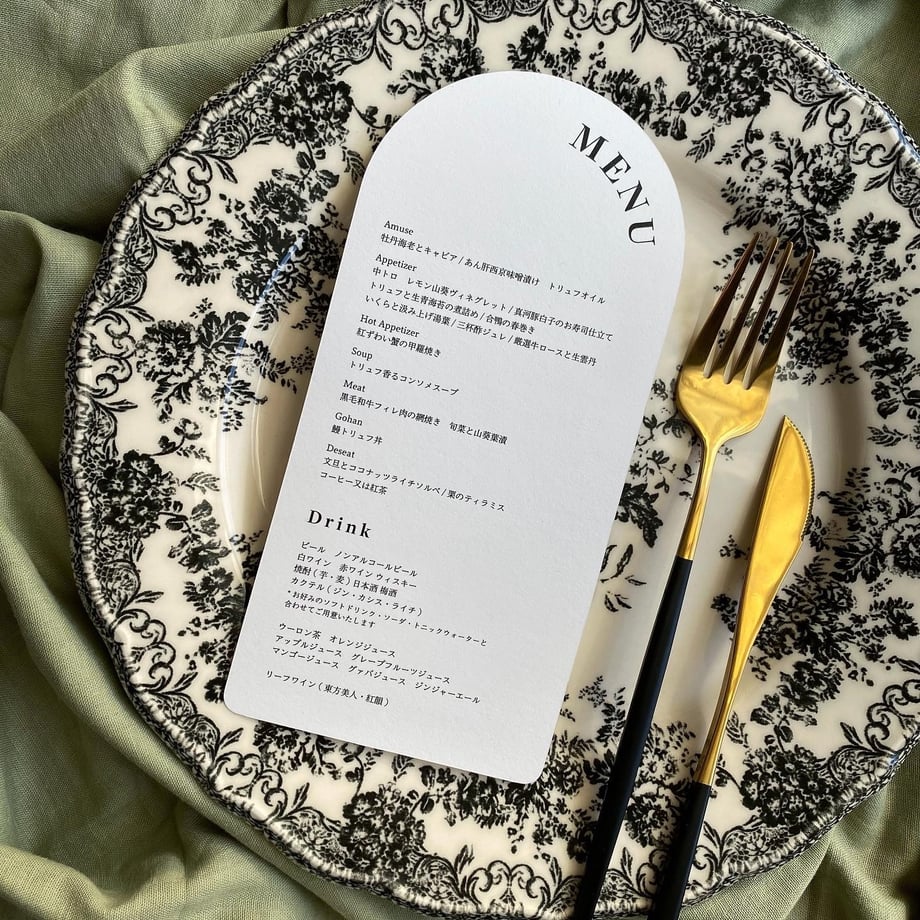 MENU
Amuse
牡丹海老とキャビア / あん肝西京味噌漬け　トリュフオイル
Appetizer
中トロ　レモン山葵ヴィネグレット / 真河豚白子のお寿司仕立て
トリュフと生青海苔の煮詰め / 合鴨の春巻き
いくらと汲み上げ湯葉 / 三杯酢ジュレ / 厳選牛ロースと生雲丹
Hot Appetizer
紅ずわい蟹の甲羅焼き
Soup
トリュフ香るコンソメスープ
Meat
黒毛和牛フィレ肉の網焼き　旬菜と山葵葉漬
Gohan
鰻トリュフ丼
Deseat
文旦とココナッツライチソルベ / 栗のティラミス
コーヒー又は紅茶
Drink
ビール　ノンアルコールビール
白ワイン　赤ワイン ウィスキー
焼酎 ( 芋・麦 ) 日本酒 梅酒
カクテル ( ジン・カシス・ライチ )
*お好みのソフトドリンク・ソーダ・トニックウォーターと
合わせてご用意いたします
ウーロン茶　オレンジジュース
アップルジュース　グレープフルーツジュース
マンゴージュース　グァバジュース　ジンジャーエール
リーフワイン ( 東方美人・紅韻 )